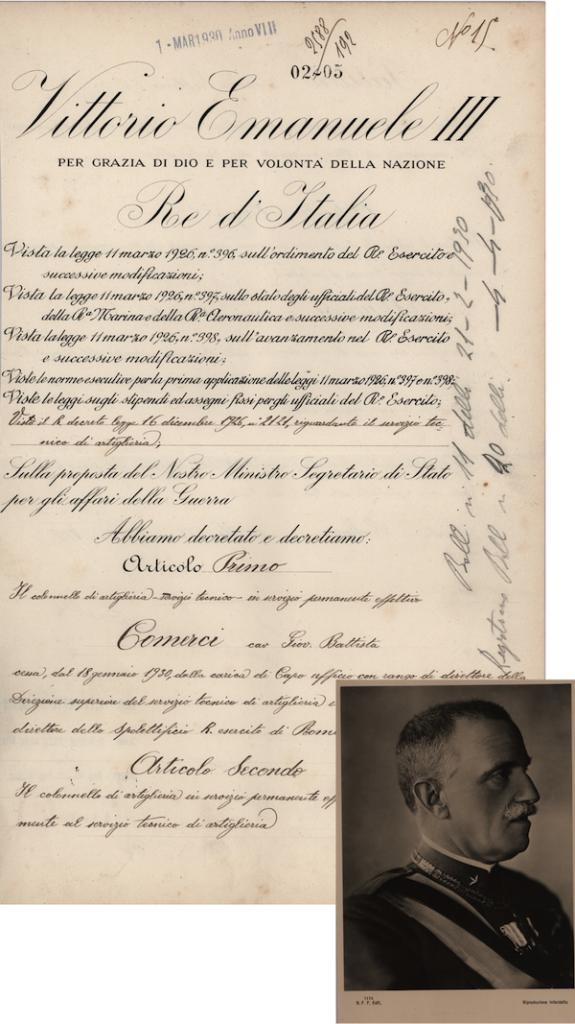 1 - MAR 1930 Anno VIII
2588/192
No 15
02-05
Vittorio Emanuele III
PER GRAZIA DI DIO E PER VOLONTÀ DELLA NAZIONE
Re d'Italia
Vista la legge 11 marzo 1926, n.º 396, sull'ordimento del R.º Esercito e
successive modificazioni;
Vista la legge 11 marzo 1926, n.º 397, sullo stato degli ufficiali del R.º Esercito,
della R.ª Marina e della R.ª Aeronautica e successive modificazioni;
Vista la legge 11 marzo 1926, n.º 398, sull'avanzamento nel R.º Esercito
e successive modificazioni;
Viste le norme esecutive per la prima applicazione delle leggi 11 marzo 1926, n.º 397 e n.º 398;
Viste le leggi sugli stipendi ed assegni fissi per gli ufficiali del R.º Esercito;
Visto il R. decreto legge 16 dicembre 1926, n. 2121, riguardante il servizio tec-
nico di artiglieria;
Sulla proposta del Nostro Ministro Segretario di Stato
per gli affari della Guerra
Abbiamo decretato e decretiamo:
Articolo Primo
Il colonnello di artiglieria - servizio tecnico - in servizio permanente effettivo
Comerci cav Giov. Battista
cessa, dal 18 gennaio 1930, dalla carica di Capo ufficio con rango di direttore della
Direzione superiore del servizio tecnico di artiglieria e
direttore dello Spolettificio R. esercito di Roma
Articolo Secondo
Il colonnello di artiglieria in servizio permanente eff
mente al servizio tecnico di artiglieria
Boll. n 11 della 21-2-1930
Registrato Boll n 20 della -4-4-1930.
1111
N.P.F. Edit.
Riproduzione interdetta